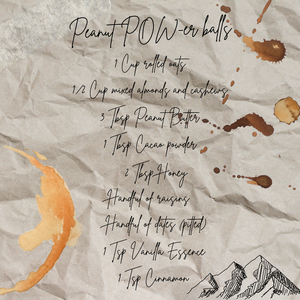 Peanut POW-er balls
1 Cup rolled oats
1/2 Cup mixed almonds and cashews
3 Tbsp Peanut Butter
1 Tbsp Cacao powder
2 Tbsp Honey
Handful of raisins
Handful of dates (pitted)
1 Tsp Vanilla Essence
1 Tsp Cinnamon